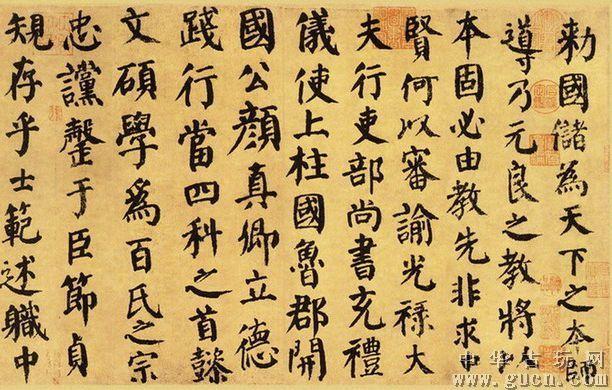 勑國儲為天下之本師
導乃元良之教將
本固必由教先非求
賢何以審諭光祿大
夫行吏部尚書充禮
儀使上柱國魯郡開
國公顏真卿立德
踐行當四科之首懿
文碩學爲百氏之宗
忠讜罄于臣節貞
規存乎士範述職中
中华古玩网
www.gucn.com